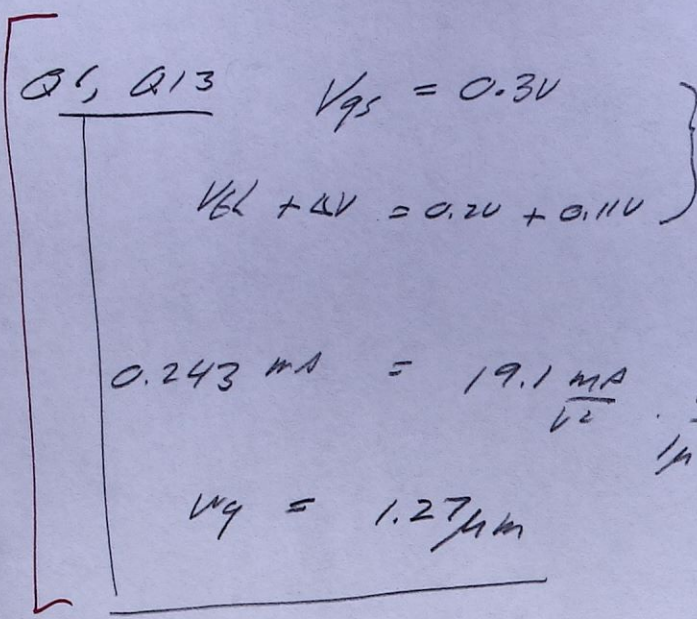 Q6, Q13 Vgs = 0.3V
+ ΔV = 0.2V + 0.11V
0.243 mA = 19.1 mA/V² ·
Wg = 1.27μm